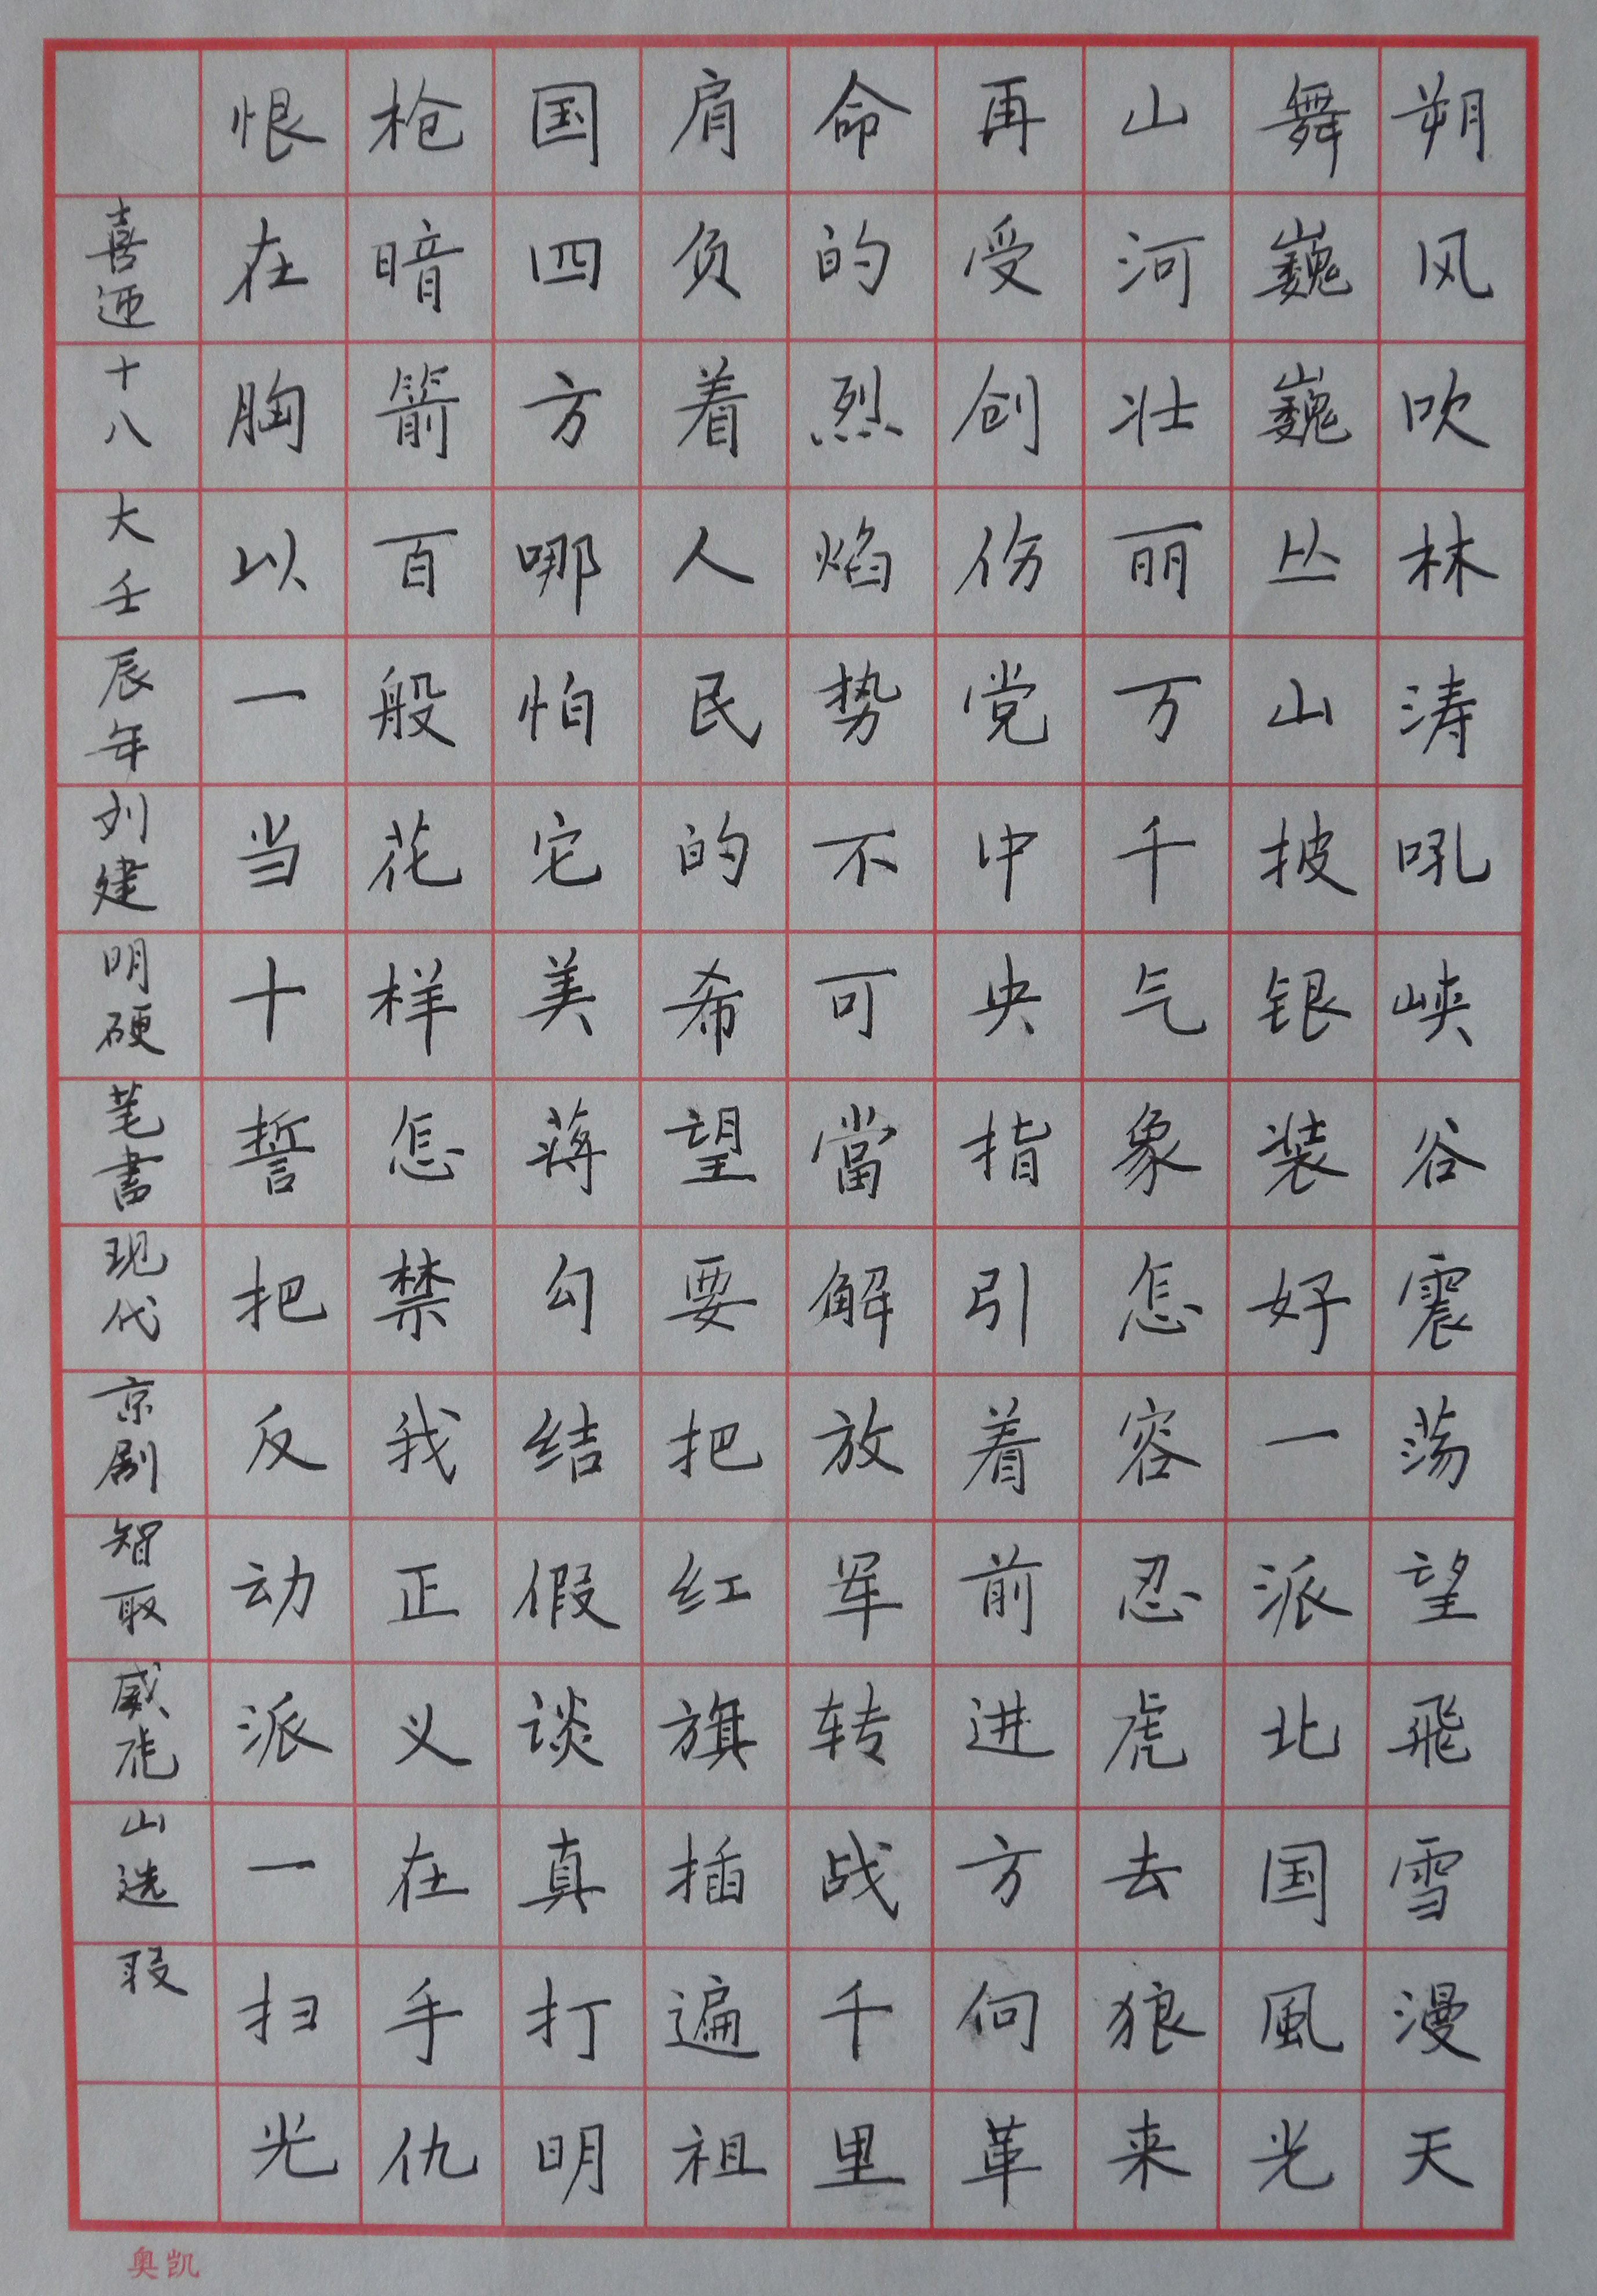 朔风吹林涛吼峡谷震荡望飛雪漫天
舞巍巍丛山披银装好一派北国風光
山河壮丽万千气象怎容忍虎去狼来
再受创伤党中央指引着前进方向革
命的烈焰势不可當解放军转战千里
肩负着人民的希望要把红旗插遍祖
国四方哪怕它美蒋勾结假谈真打明
枪暗箭百般花样怎禁我正义在手仇
恨在胸以一当十誓把反动派一扫光
喜迎十八大壬辰年刘建明硬笔書现代京剧智取威虎山选段
奥凯